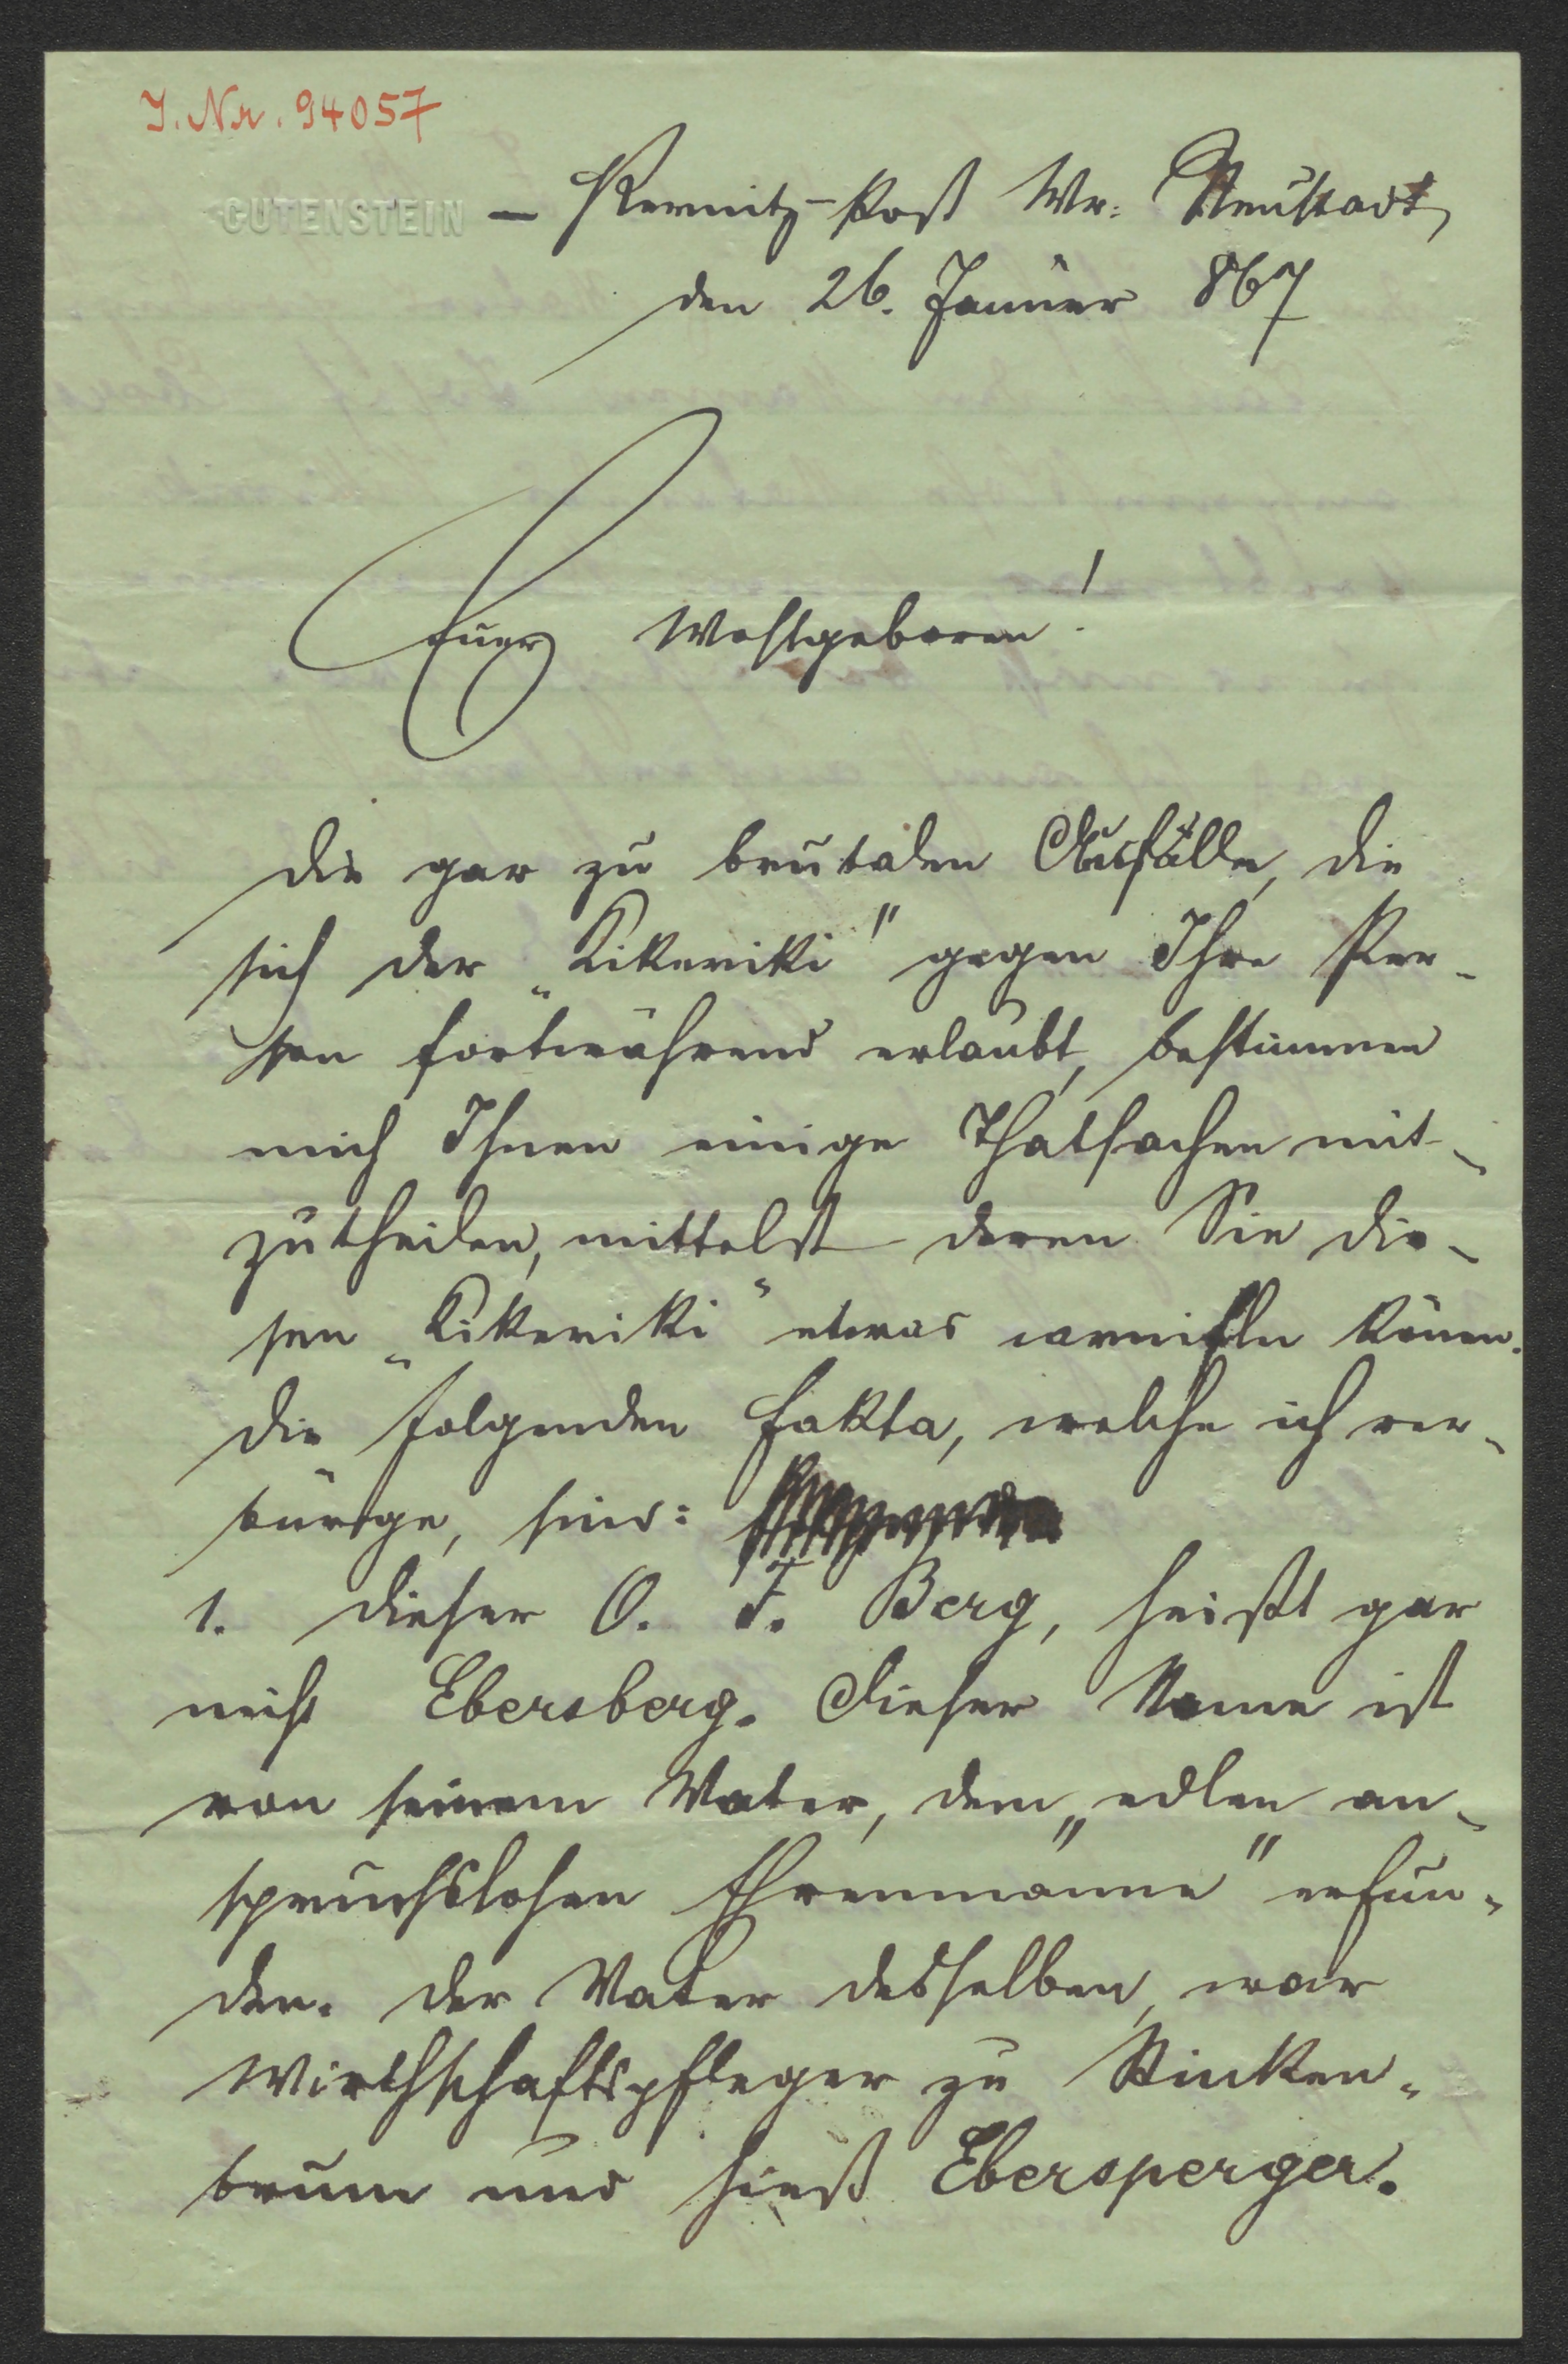 I. Nr. 94057
GUTENSTEIN – Pernitz-Post Wr. Neustadt,
den 26. Januar 867
Euer Wohlgeboren!
Die gar zu brutalen Ausfälle, die
sich der „Kikeriki" gegen Ihre Per-
son fortwährend erlaubt, bestimmen
mich Ihnen einige Thatsachen mit-
zutheilen, mittelst deren Sie die-
sen „Kikeriki" etwas karnifln könen.
Die folgenden Fakta, welche ich ver-
bürge, sind:
1. Dieser O. F. Berg, heißt gar
nicht Ebersberg. Dieser Name ist
von seinem Vater, dem „edlen an-
spruchslosen Ehrenmanne" erfun-
den. Der Vater desselben, war
Wirthschaftspfleger zu Stinken-
brunn und hieß Ebersperger.